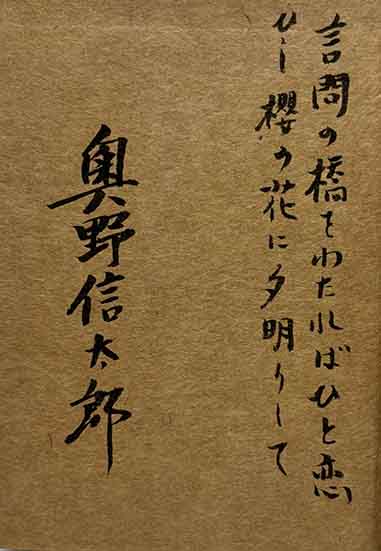 言問の橋をわたればひと恋
ひし櫻の花に夕明りして
奥野信太郎